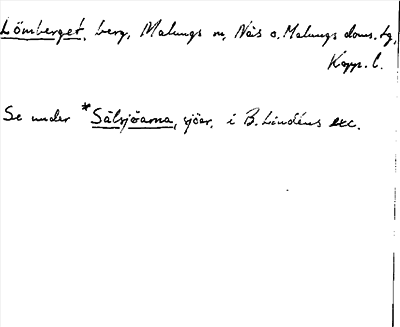 Lömberget, berg, Malungs sn, Nås o. Malungs doms. tg,
Kopp. l.
Se under *Sälsjöarna, sjöar, i B. Lindéns exc.